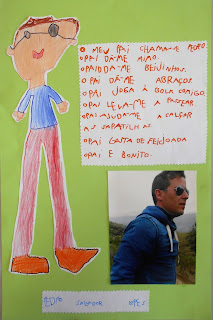 O MEU PAI CHAMA-SE PEDRO.
O PAI DÁ-ME MIMO.
O PAI DÁ-ME BEIJINHOS.
O PAI DÁ-ME ABRAÇOS.
O PAI JOGA À BOLA COMIGO.
O PAI LEVA-ME A PASSEAR.
O PAI AJUDA-ME A CALÇAR
AS SAPATILHAS.
O PAI GOSTA DE FEIJOADA
O PAI É BONITO.
SALVADOR LOPES